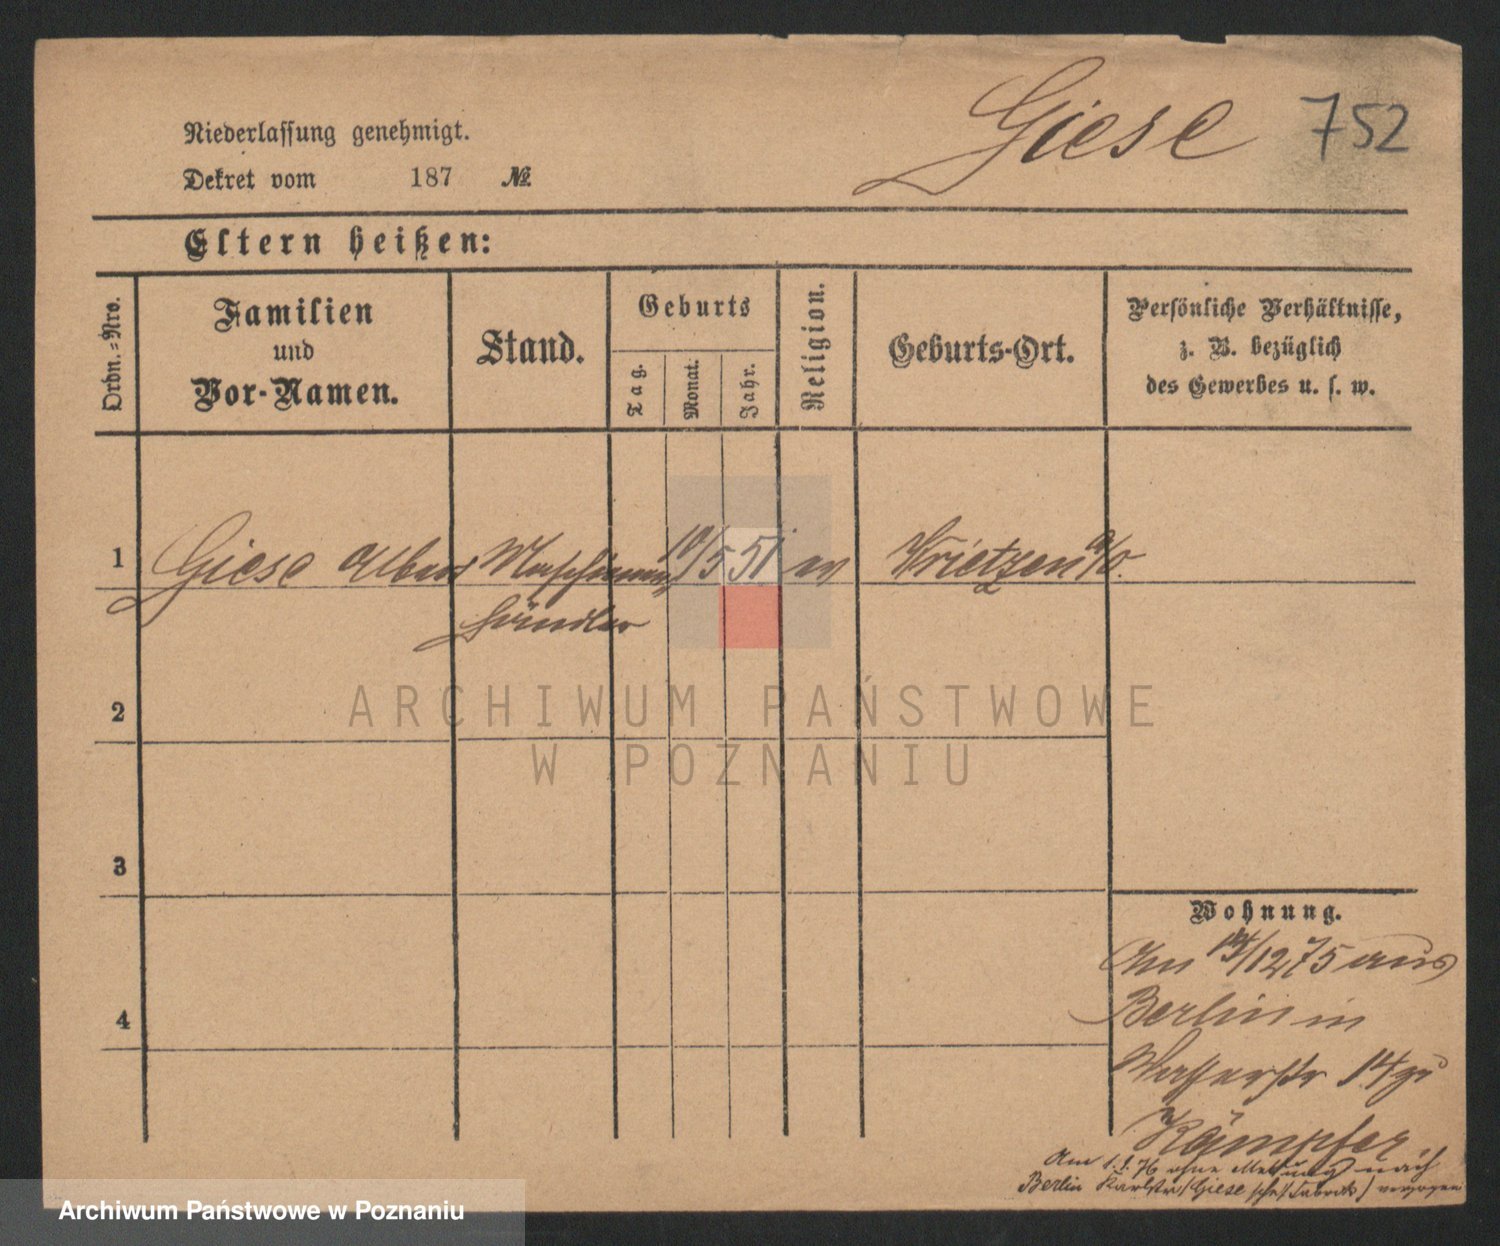 Giese 752
Niederlassung genehmigt.
Dekret vom 187 №
Eltern heißen:
Ordn.-Nro.
Familien
und
Vor-Namen.
Stand.
Geburts
Tag.
Monat.
Jahr.
Religion.
Geburts-Ort.
Persönliche Verhältnisse,
z. B. bezüglich
des Gewerbes u. s. w.
1 Giese Albert Maschinen 10/5 51 ev Wrietzen a/O.
händler
2
ARCHIWUM PAŃSTWOWE
W POZNANIU
3
Wohnung.
Am /12 75 aus
Berlin in
4
Wasserstr 14 zu
Kämpfer
Am 1.1.76 ohne Meldung nach
Berlin Karlstr (Giese sche Fabrik) verzogen
Archiwum Państwowe w Poznaniu